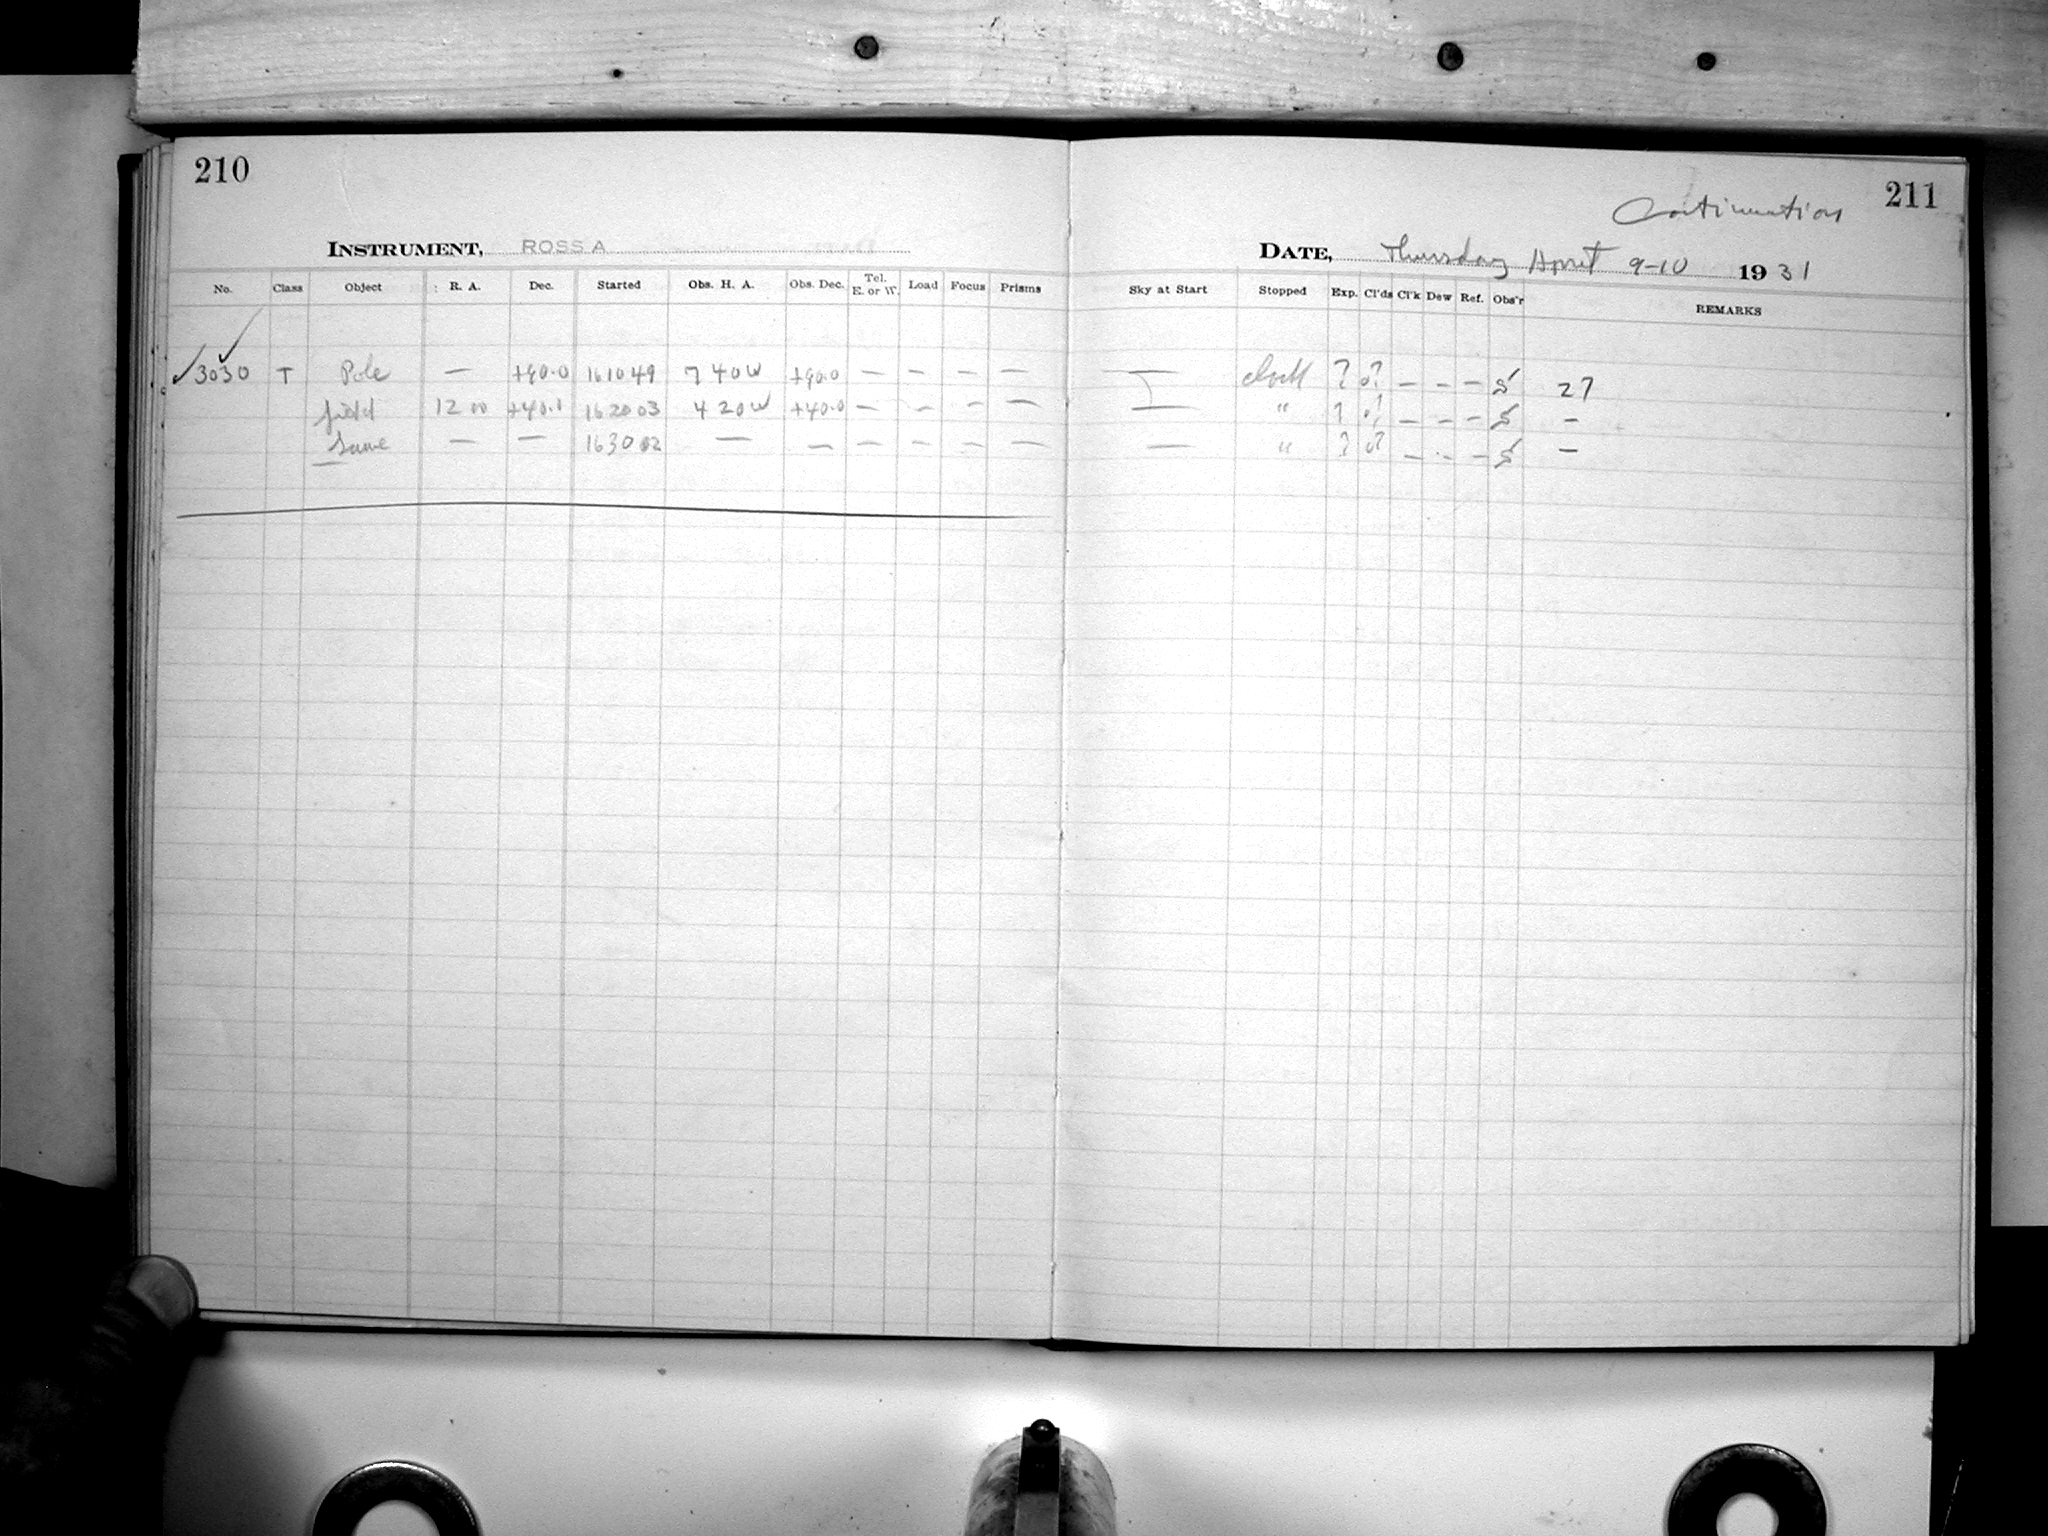 210
INSTRUMENT, ROSS A
No. Class Object R. A. Dec. Started Obs. H. A. Obs. Dec. Tel. E. or W. Load Focus Prisms
3030 T Pole — +90.0 16 10 49 7 40 W +90.0 — — — —
field 12 00 +40.1 16 20 03 4 20 W +40.0 — — — —
Same — — 16 30 02 — — — — — —
211
Continuation
DATE, Thursday April 9-10 1931
Sky at Start Stopped Exp. Cl'ds Cl'k Dew Ref. Obs'r REMARKS
— clock ? ? — — — 27
— " ? ? — — — —
— " ? ? — — — —